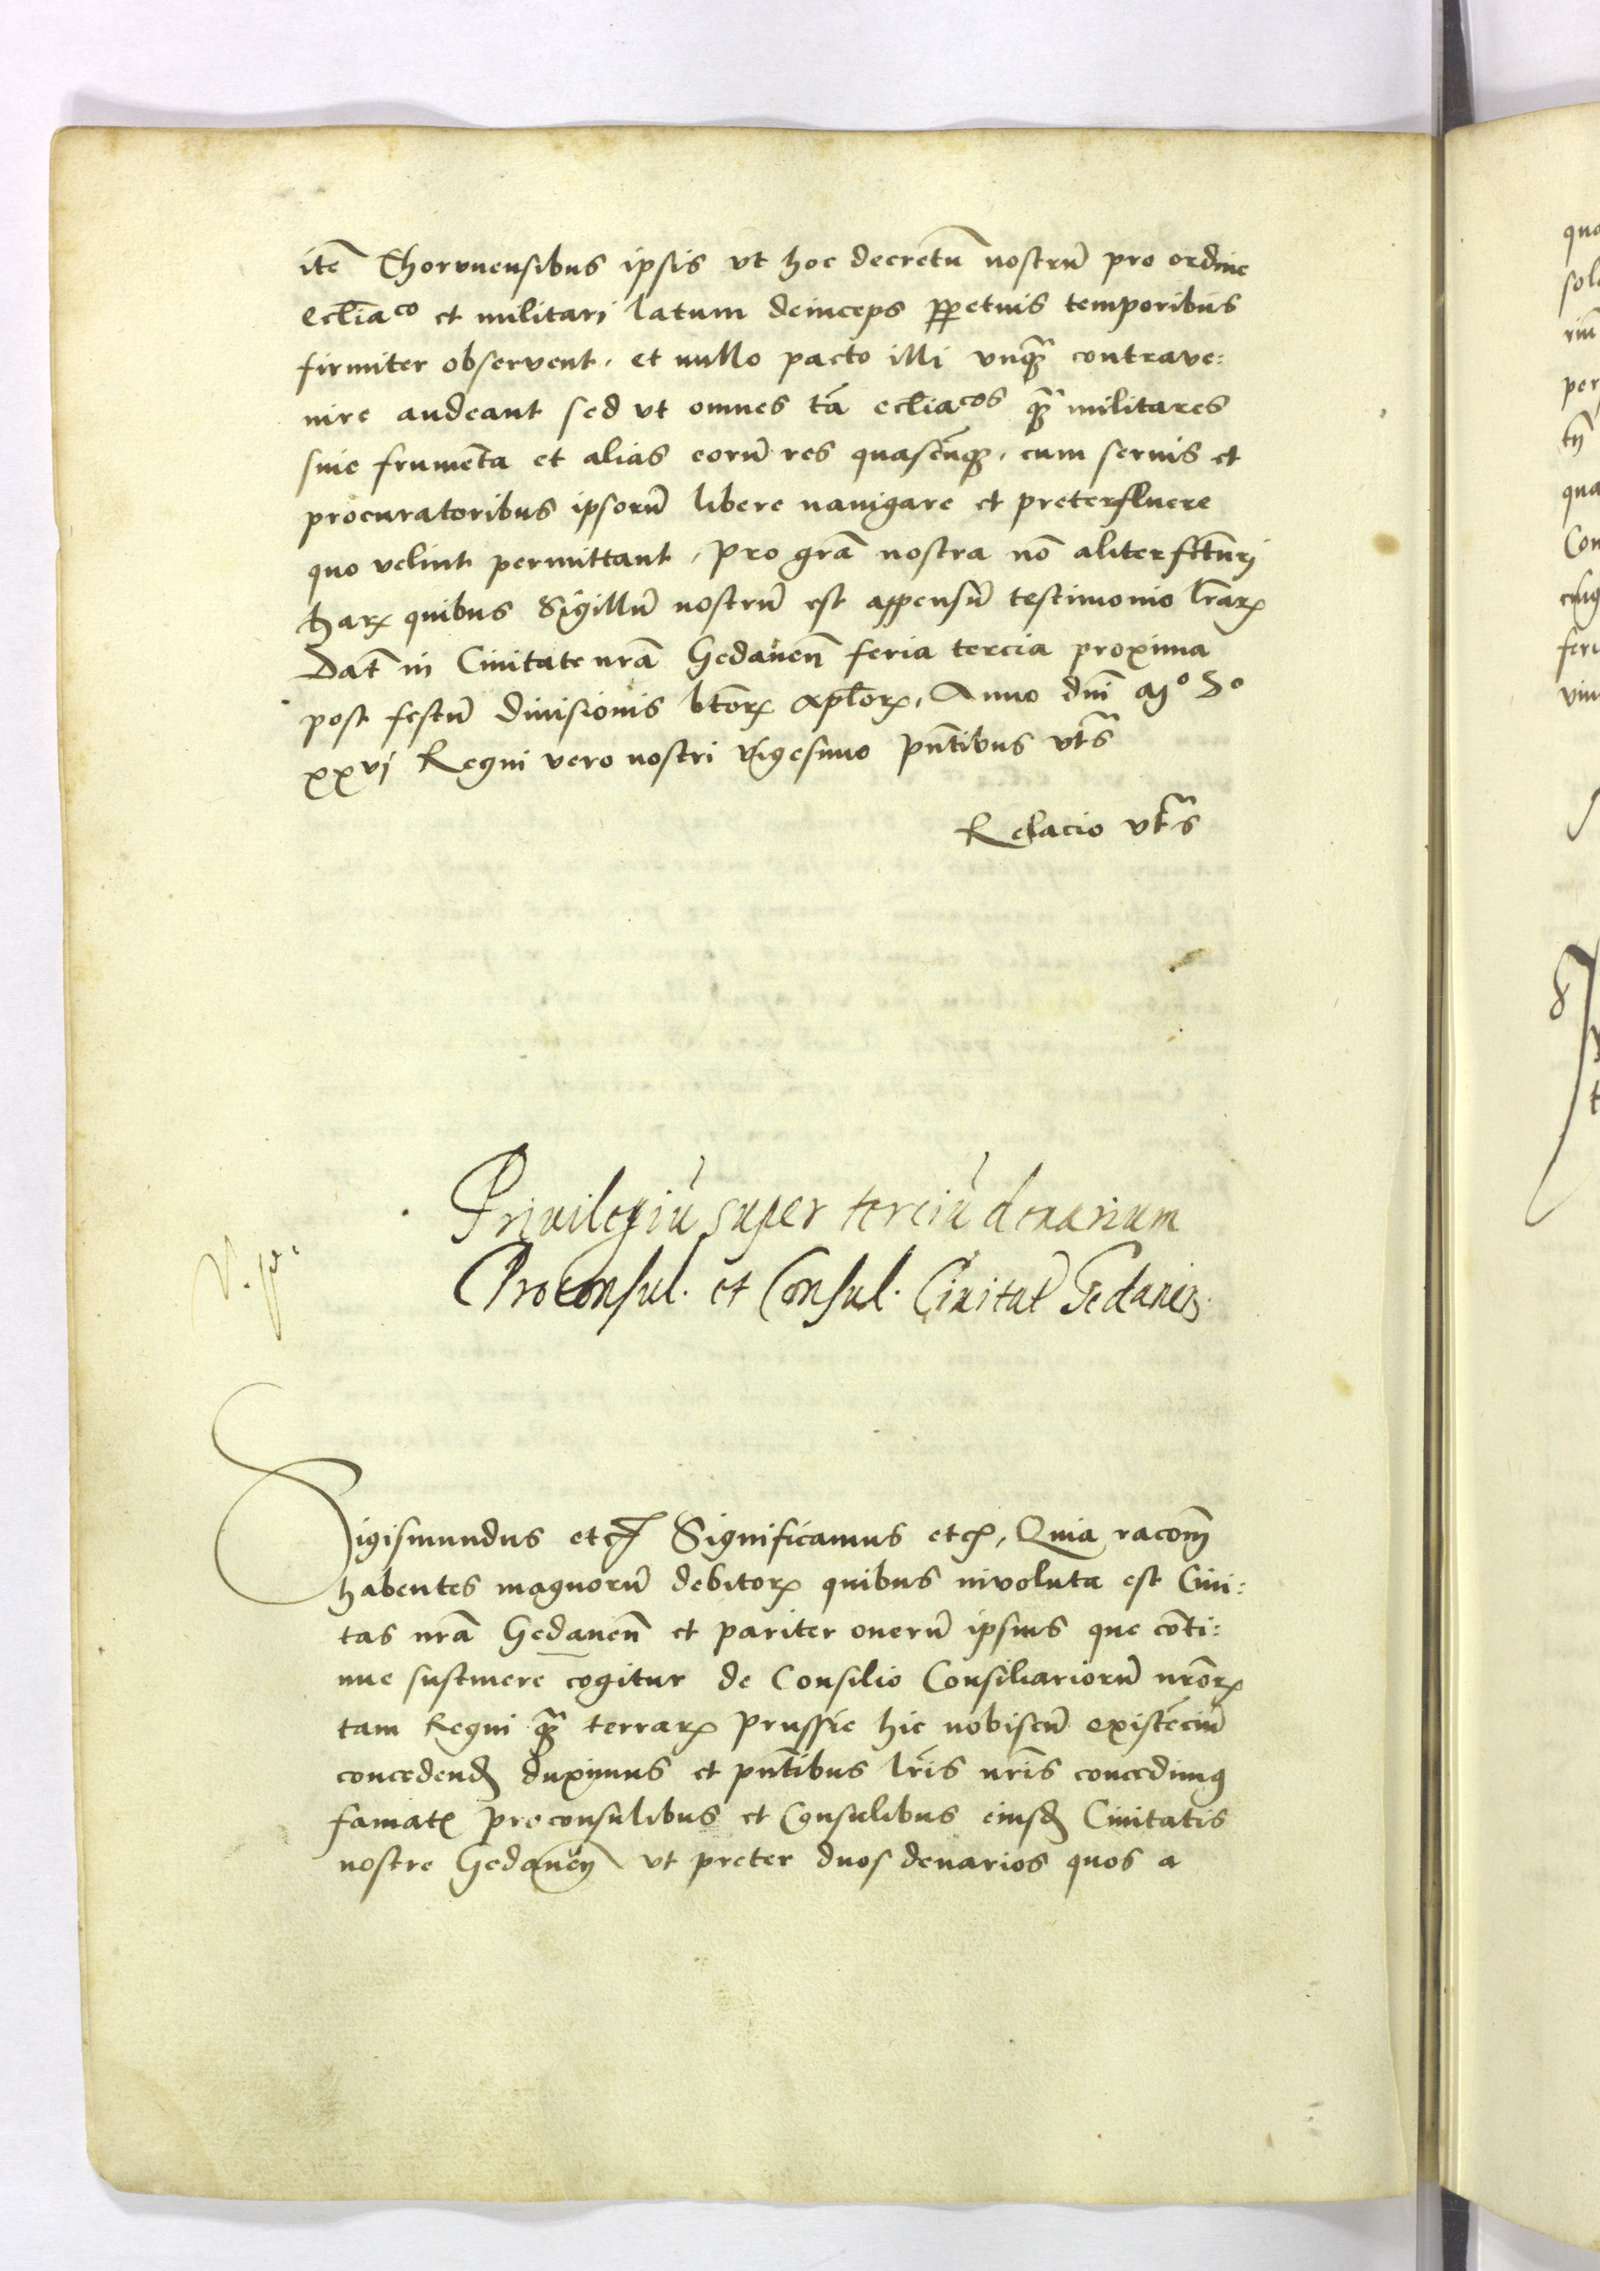 itē Thorunensibus ipsis vt hoc decretū nostrū pro ordine
eccliāᶜᵒ et militari latum deinceps ꝑpetuis temporibus
firmiter observent. et nullo pacto illi vnqꝫ̄ contrave:
nire audeant sed vt omnes tā ecclīaᶜᵒˢ qꝫ̄ militares
suie frumēta et alias eorū res quascūqꝫ. cum seruis et
procuratoribus ipsorū libere nauigare et preterfluere
quo velint permittant. pro grā nostra nō aliter fctūri
harꝝ quibus Sigillū nostrū est appensū testimonio lrārꝝ
Dat̄ in Ciuitate nrā Gedaneñ feria tercia proxima
post festū Diuisionis btōrꝝ Aplōrꝝ. Anno dnī Mº Dº
xxvj Regni vero nostri vigesimo pn̄tibus vts̄
Relacio vts̄
Priuilegiū super terciū denarium
Proconsul. et Consul. Ciuitat̄ Gedaneñ.
Sigismundus etcꝫ Significamus etcꝫ. Quia racōm̄
habentes magnorū debitorꝝ quibus inuoluta est Ciui:
tas nrā Gedaneñ et pariter onerū ipsius que cōti:
nue sustinere cogitur de Consilio Consiliariorū nrōrꝝ
tam Regni qꝫ̄ terrarꝝ prussie hic nobiscū existēciū
concedendꝫ duximus et pn̄tibus lrīs nrīs concedimꝰ
famatꝫ proconsulibus et Consulibus eiusdꝫ Ciuitatis
nostre Gedaneñ vt preter duos denarios quos a